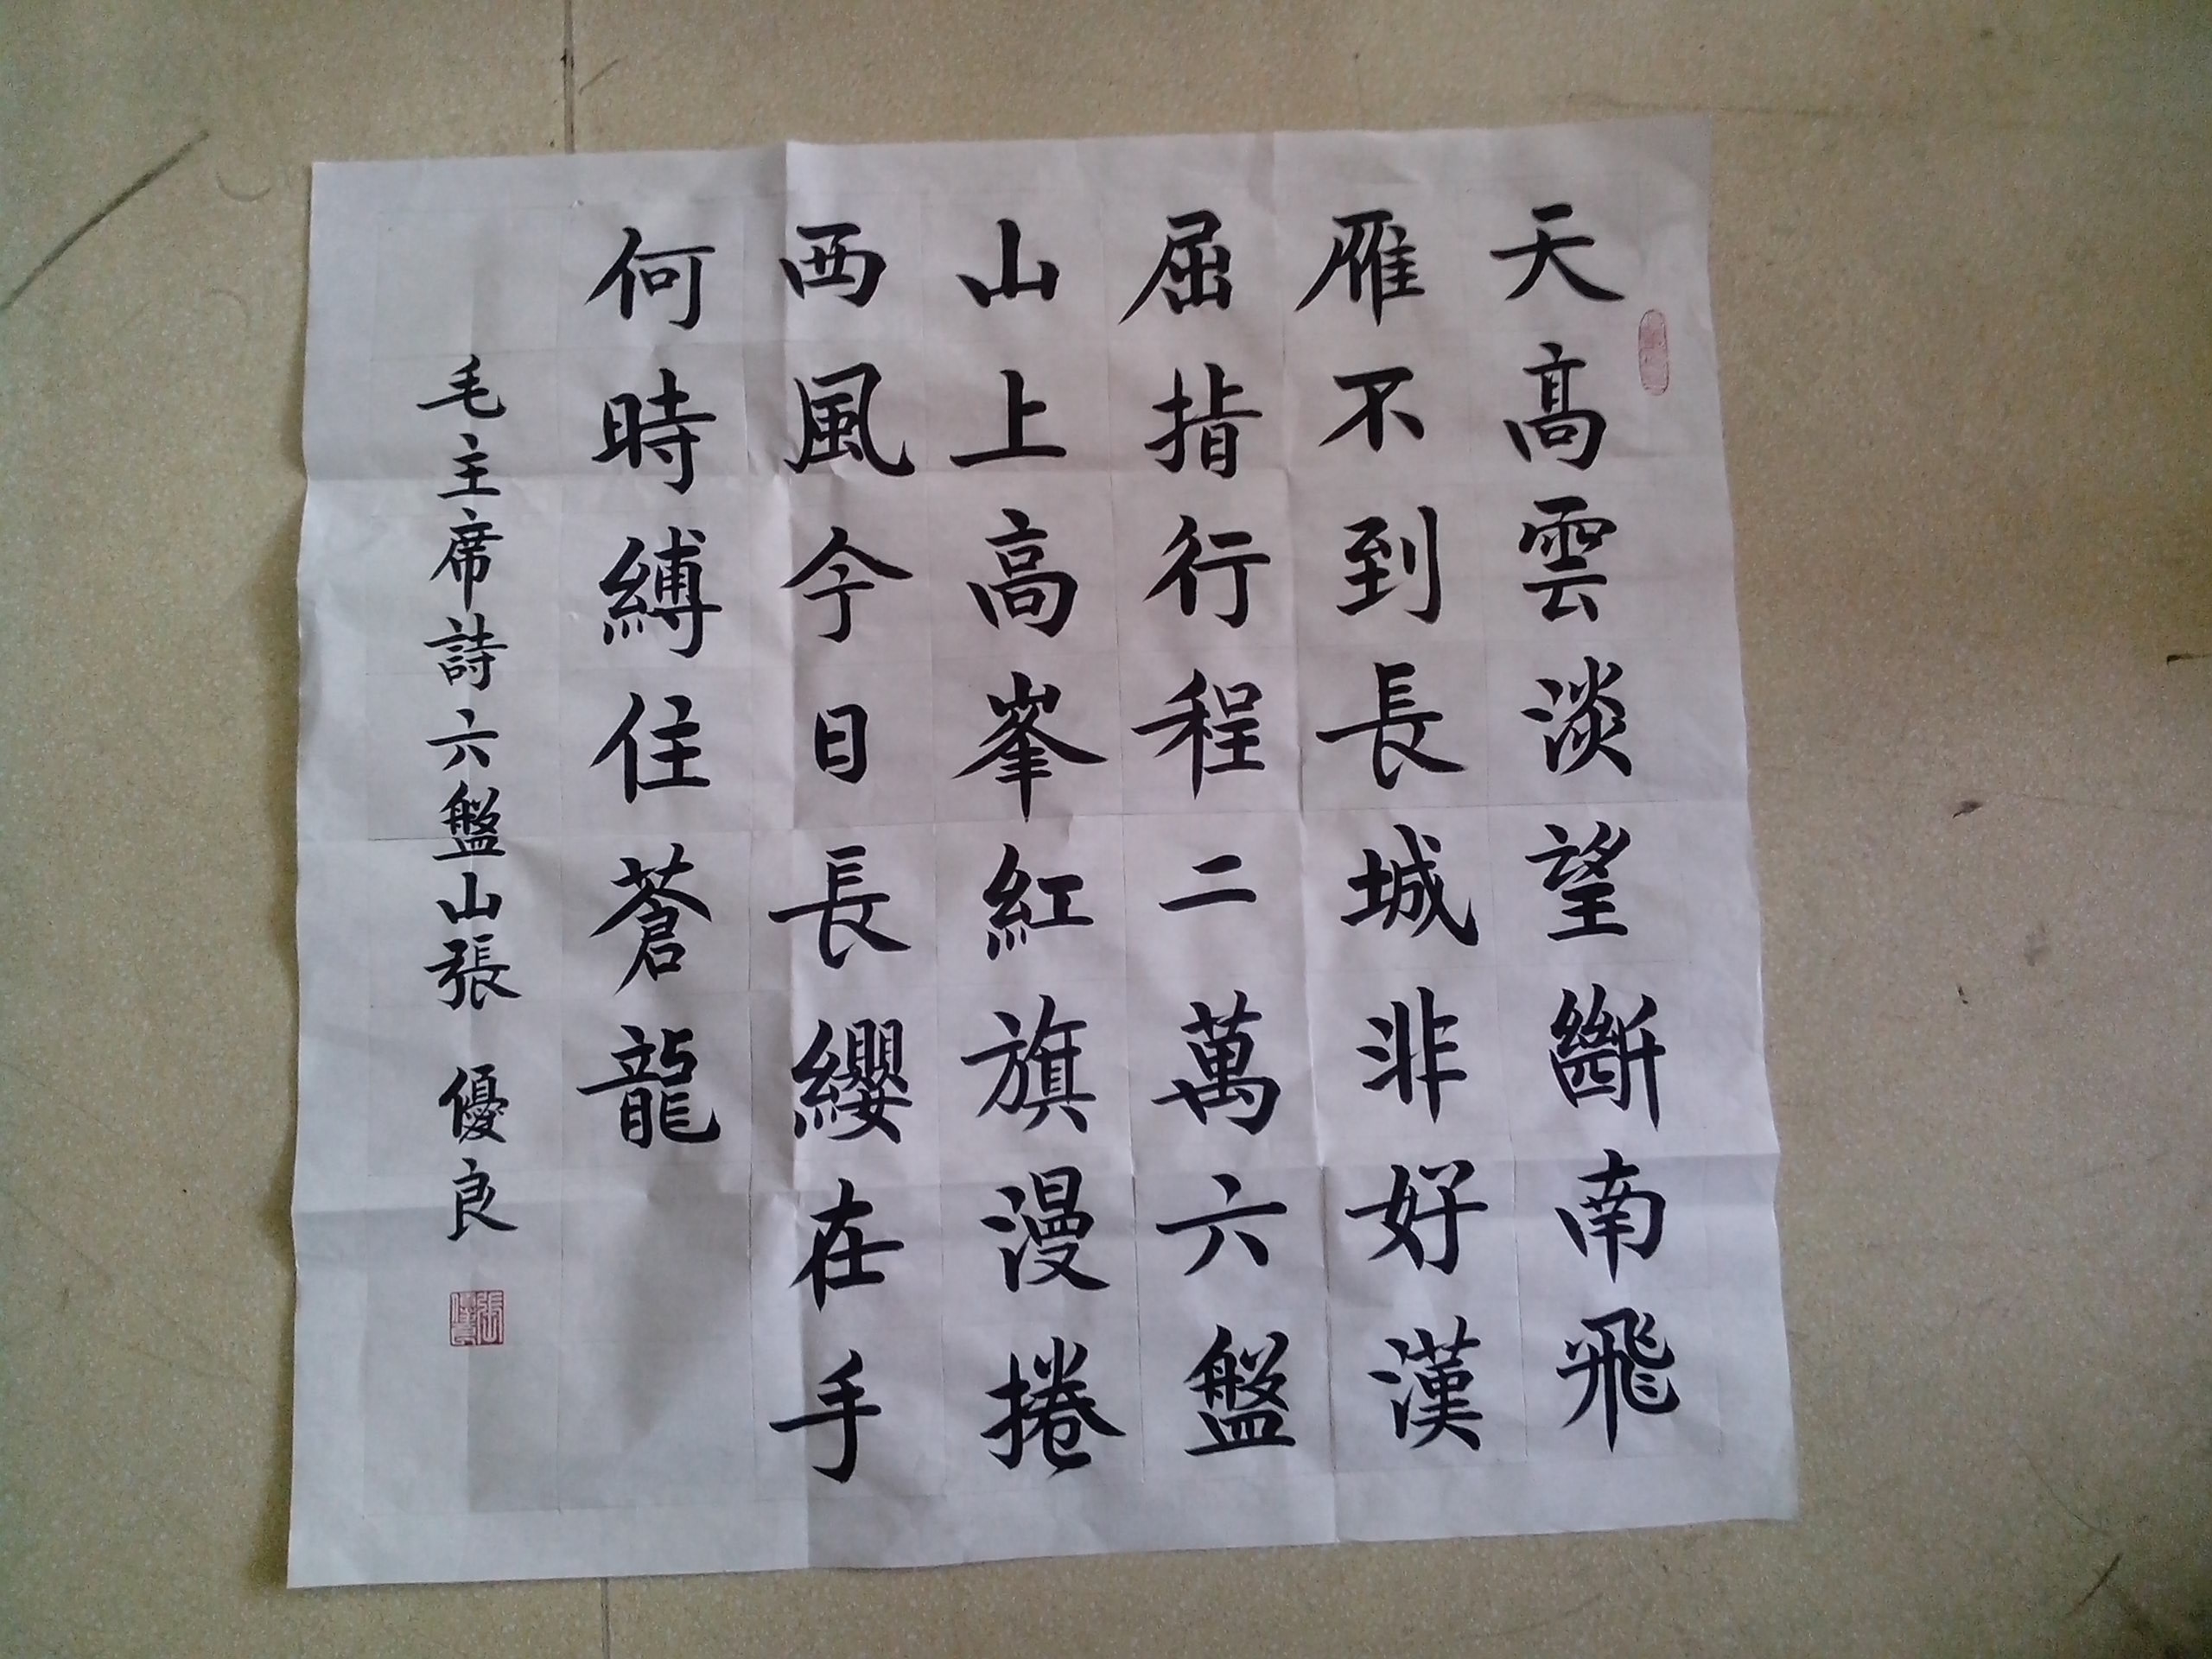 天高雲淡望斷南飛
雁不到長城非好漢
屈指行程二萬六盤
山上高峯紅旗漫捲
西風今日長纓在手
何時縛住蒼龍
毛主席詩六盤山張優良
張優良